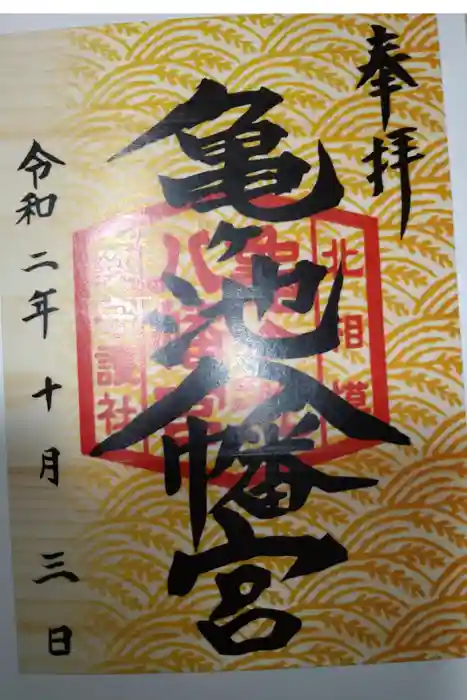 奉拝
亀ヶ池八幡宮
北相模
八幡宮
護社
令和二年十月三日